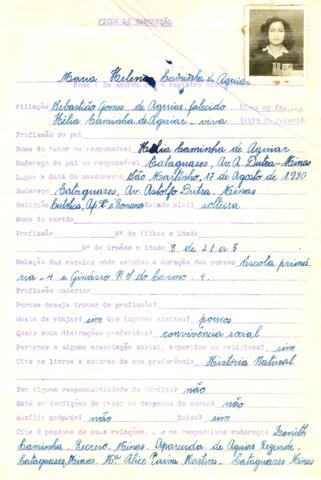 FICHA DE INSCRIÇÃO
Maria Helena Caminha de Aguiar
Nome ( de acordo com o registro civil
Filiação Sebastião Gomes de Aguiar, falecido
Hélia Caminha de Aguiar - viva (viva ou falecida
Profissão do pai
Nome do tutor ou responsável Hélia Caminha de Aguiar
Endereço do pai ou responsável Cataguases, Av. A. Dutra - Minas
Lugar e data do nascimento São Martinho, 17 de Agosto de 1930
Endereço Cataguases, Av. Astolfo Dutra, Minas
Religião Católica, Ap. Romana Estado civil solteira
Nome do marido
Nº de filhos e idade
Nº de irmãos e idade 8 de 21 a 5
Relação das escolas onde estudou e duração dos cursos Escola primá-
ria - 4 e Ginásio N. S. do Carmo - 4.
Profissão anterior
Porque deseja trocar de profissão?
Gosta de viajar? sim Que lugares visitou? poucos
Quais suas distrações preferidas? convivência social
Pertence a alguma associação social, esportiva ou religiosa? sim
Cite os livros e autores de sua preferência História Natural
Tem alguma responsabilidade de família? não
Está em condições de fazer as despesas do curso? não
Auxílio próprio? não Bolsa? sim
Cite 3 pessoas de suas relações, e os respectivos endereços Zenith
Caminha - Recreio - Minas. Aparecida de Aguiar Rezende -
Cataguases, Minas. Mª Alice Paiva Martins - Cataguases Minas